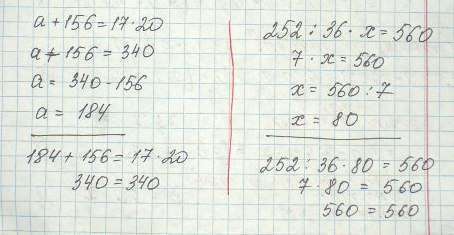 a + 156 = 17 · 20
a + 156 = 340
a = 340 - 156
a = 184
184 + 156 = 17 · 20
340 = 340
252 : 36 · x = 560
7 · x = 560
x = 560 : 7
x = 80
252 : 36 · 80 = 560
7 · 80 = 560
560 = 560